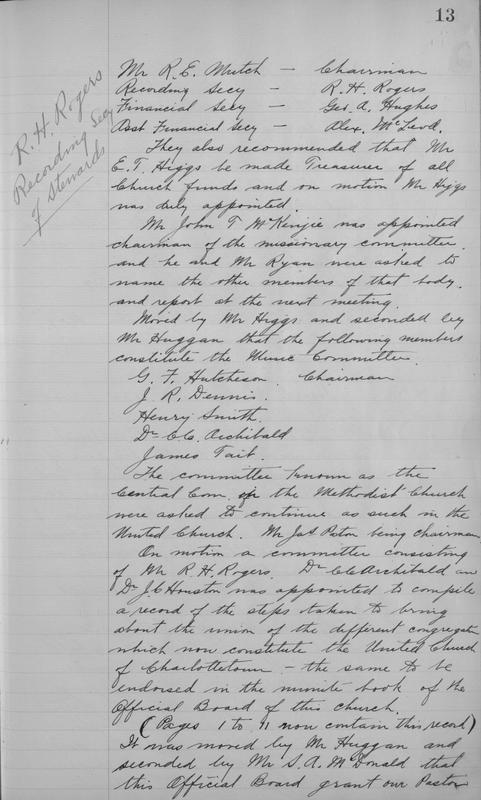 13
R. H. Rogers
Recording Secy
of Stewards
Mr R. E. Mutch — Chairman
Recording Secy — R. H. Rogers
Financial Secy — Geo. A. Hughes
Asst Financial Secy — Alex. McLeod.
They also recommended that Mr
E. T. Higgs be made Treasurer of all
Church funds and on motion Mr Higgs
was duly appointed.
Mr John T McKenzie was appointed
chairman of the missionary committee
and he and Mr Ryan were asked to
name the other members of that body.
and report at the next meeting.
Moved by Mr Higgs and seconded by
Mr Huggan that the following members
constitute the Music Committee.
G. F. Hutcheson. Chairman
J. R. Dennis.
Henry Smith.
Dr C.C. Archibald
James Tait.
The committee known as the
Central Com. of the Methodist Church
were asked to continue as such in the
United Church. Mr Jas Paton being chairman
On motion a committee consisting
of Mr R. H. Rogers. Dr C C Archibald and
Dr J. C Houston was appointed to compile
a record of the steps taken to bring
about the union of the different congregatn
which now constitute the United Church
of Charlottetown — the same to be
endorsed in the minute book of the
Official Board of this church.
(Pages 1 to 11 now contain this record)
It was moved by Mr Huggan and
seconded by Mr S. A. McDonald that
this Official Board grant our Pastor